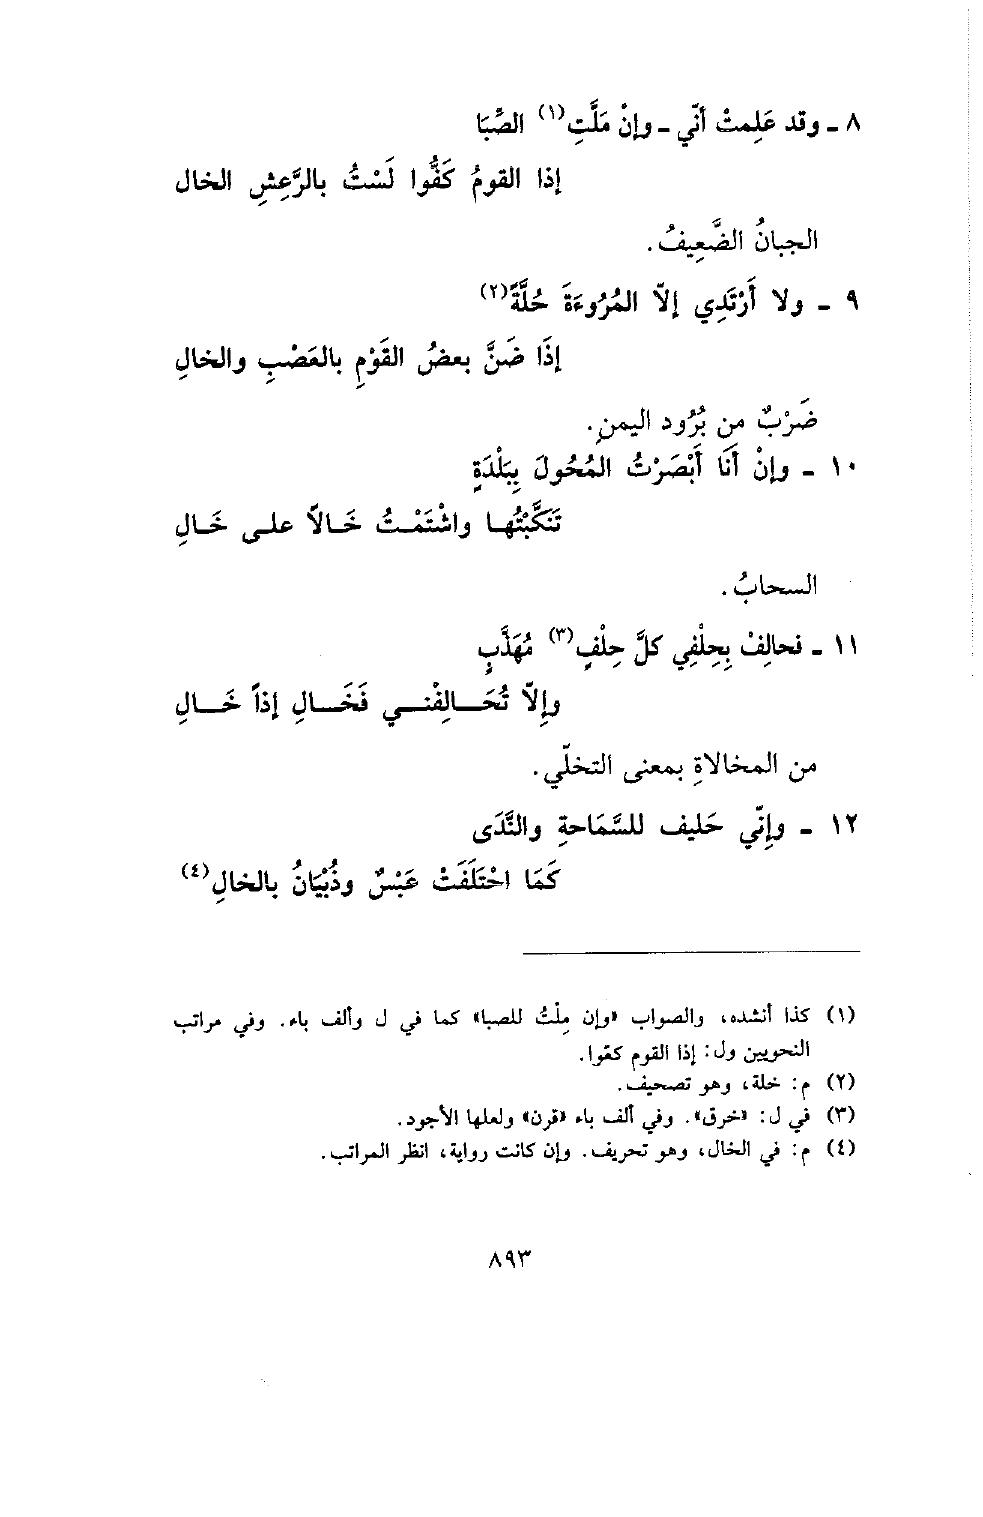 ٨ ـ وقد عَلِمتْ أنّي ـ وإنْ مَلَّتِ(١) الصِّبَا
إذا القومُ كَفُّوا لَسْتُ بالرَّعِشِ الخال
الجبانُ الضَّعِيفُ.
٩ ـ ولا أَرْتَدِي إلاّ المُرُوءَةَ حُلَّةً(٢)
إذَا ضَنَّ بعضُ القَوْمِ بالعَصْبِ والخالِ
ضَرْبٌ من بُرُود اليمنِ.
١٠ ـ وإنْ أَنَا أَبْصَرْتُ المُحُولَ بِبَلْدَةٍ
تَنَكَّبْتُها واشْتَمْتُ خَالاً على خَالِ
السحابُ.
١١ ـ فحالِفْ بِحِلْفِي كلَّ حِلْفٍ(٣) مُهَذَّبٍ
وإلاّ تُحَالِفْني فَخَالِ إذاً خَالِ
من المخالاةِ بمعنى التخلّي.
١٢ ـ وإنّي حَليف للسَّمَاحةِ والنَّدَى
كَمَا اخْتَلَفَتْ عَبْسٌ وذُبْيَانُ بالخالِ(٤)
(١) كذا أنشده، والصواب «وإن مِلْتُ للصبا» كما في ل وألف باء. وفي مراتب
النحويين ول: إذا القوم كعّوا.
(٢) م: خلة، وهو تصحيف.
(٣) في ل: «خرق». وفي ألف باء «قرن» ولعلها الأجود.
(٤) م: في الخال، وهو تحريف. وإن كانت رواية، انظر المراتب.
٨٩٣